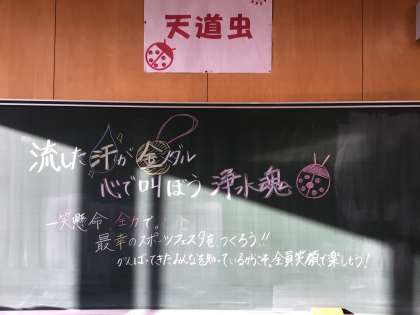 天道虫
流した汗が金メダル
心で叫ぼう 浄水魂
一笑懸命 全力で。
最幸のスポーツフェスタをつくろう!!
がんばってきたみんなを知っているからこそ、全員笑顔で楽しもう!